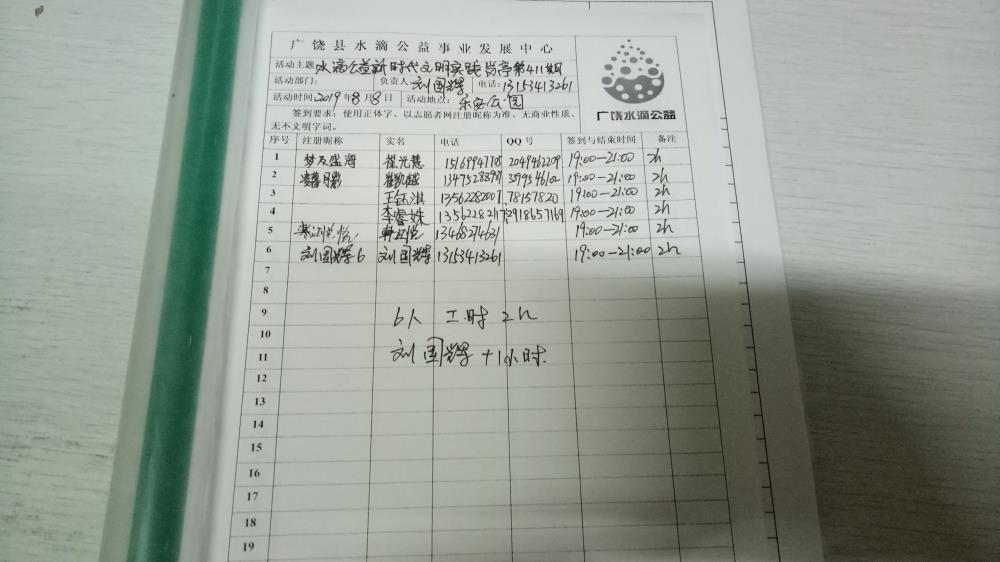 广饶县水滴公益事业发展中心
活动主题: 水滴公益新时代文明实践岗亭第411期
活动部门: 负责人: 刘国辉 电话: 13153413261
活动时间: 2019年8月8日 活动地点: 乐安公园
签到要求：使用正体字、以志愿者网注册昵称为准、无商业性质、
无不文明字词。
广饶水滴公益
序号 注册昵称 实名 电话 QQ号 签到与结束时间 备注
1 崔光慧 2049462209 19:00-21:00 2h
2 崔凯越 19:00-21:00 2h
3 王钰淇 13562282007 78157820 19:00-21:00 2h
4 李睿姝 2918657169 19:00-21:00 2h
5 13468274631 19:00-21:00 2h
6 刘国辉6 刘国辉 13153413261 19:00-21:00 2h
7
8
9 6人 工时 2h
10
11 刘国辉 +1小时.
12
13
14
15
16
17
18
19